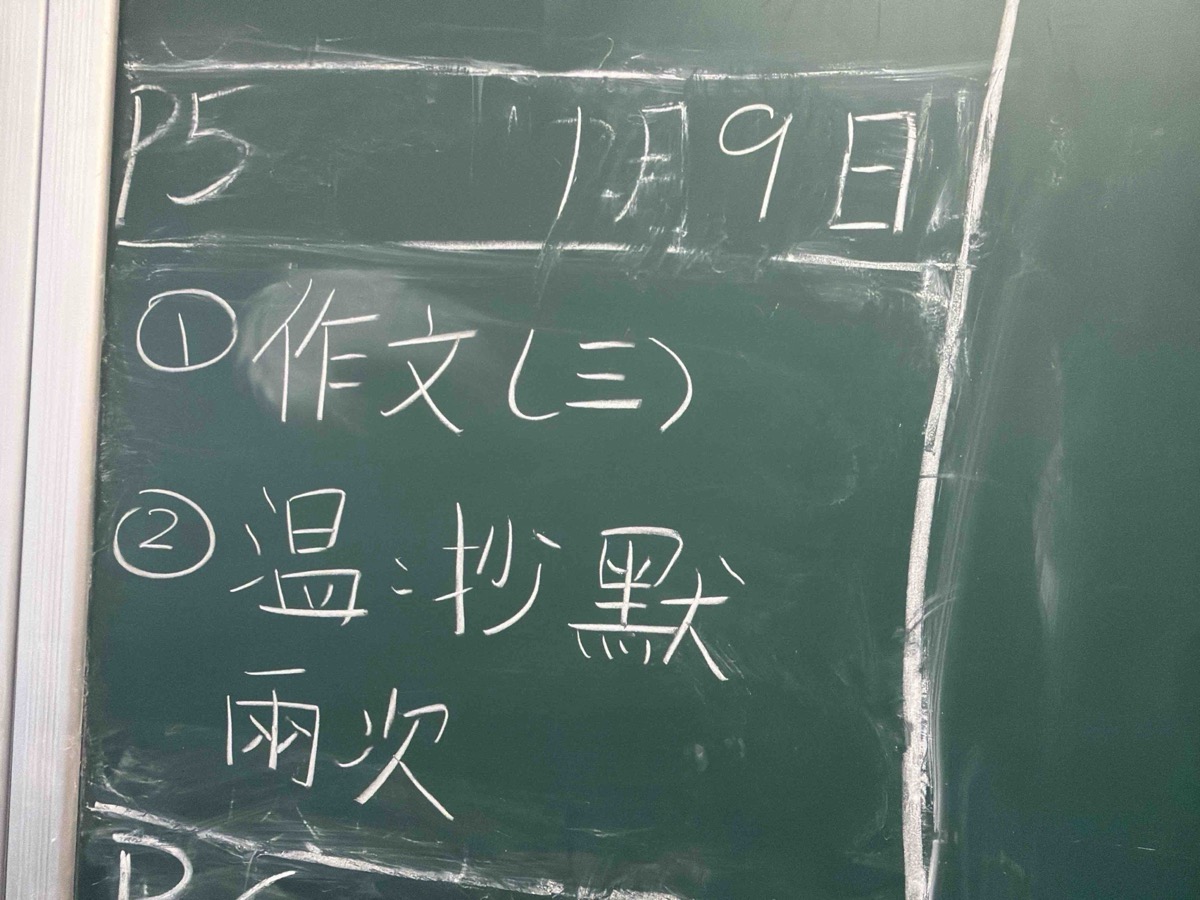 P5 1月9日
① 作文(三)
② 温:抄默
兩次